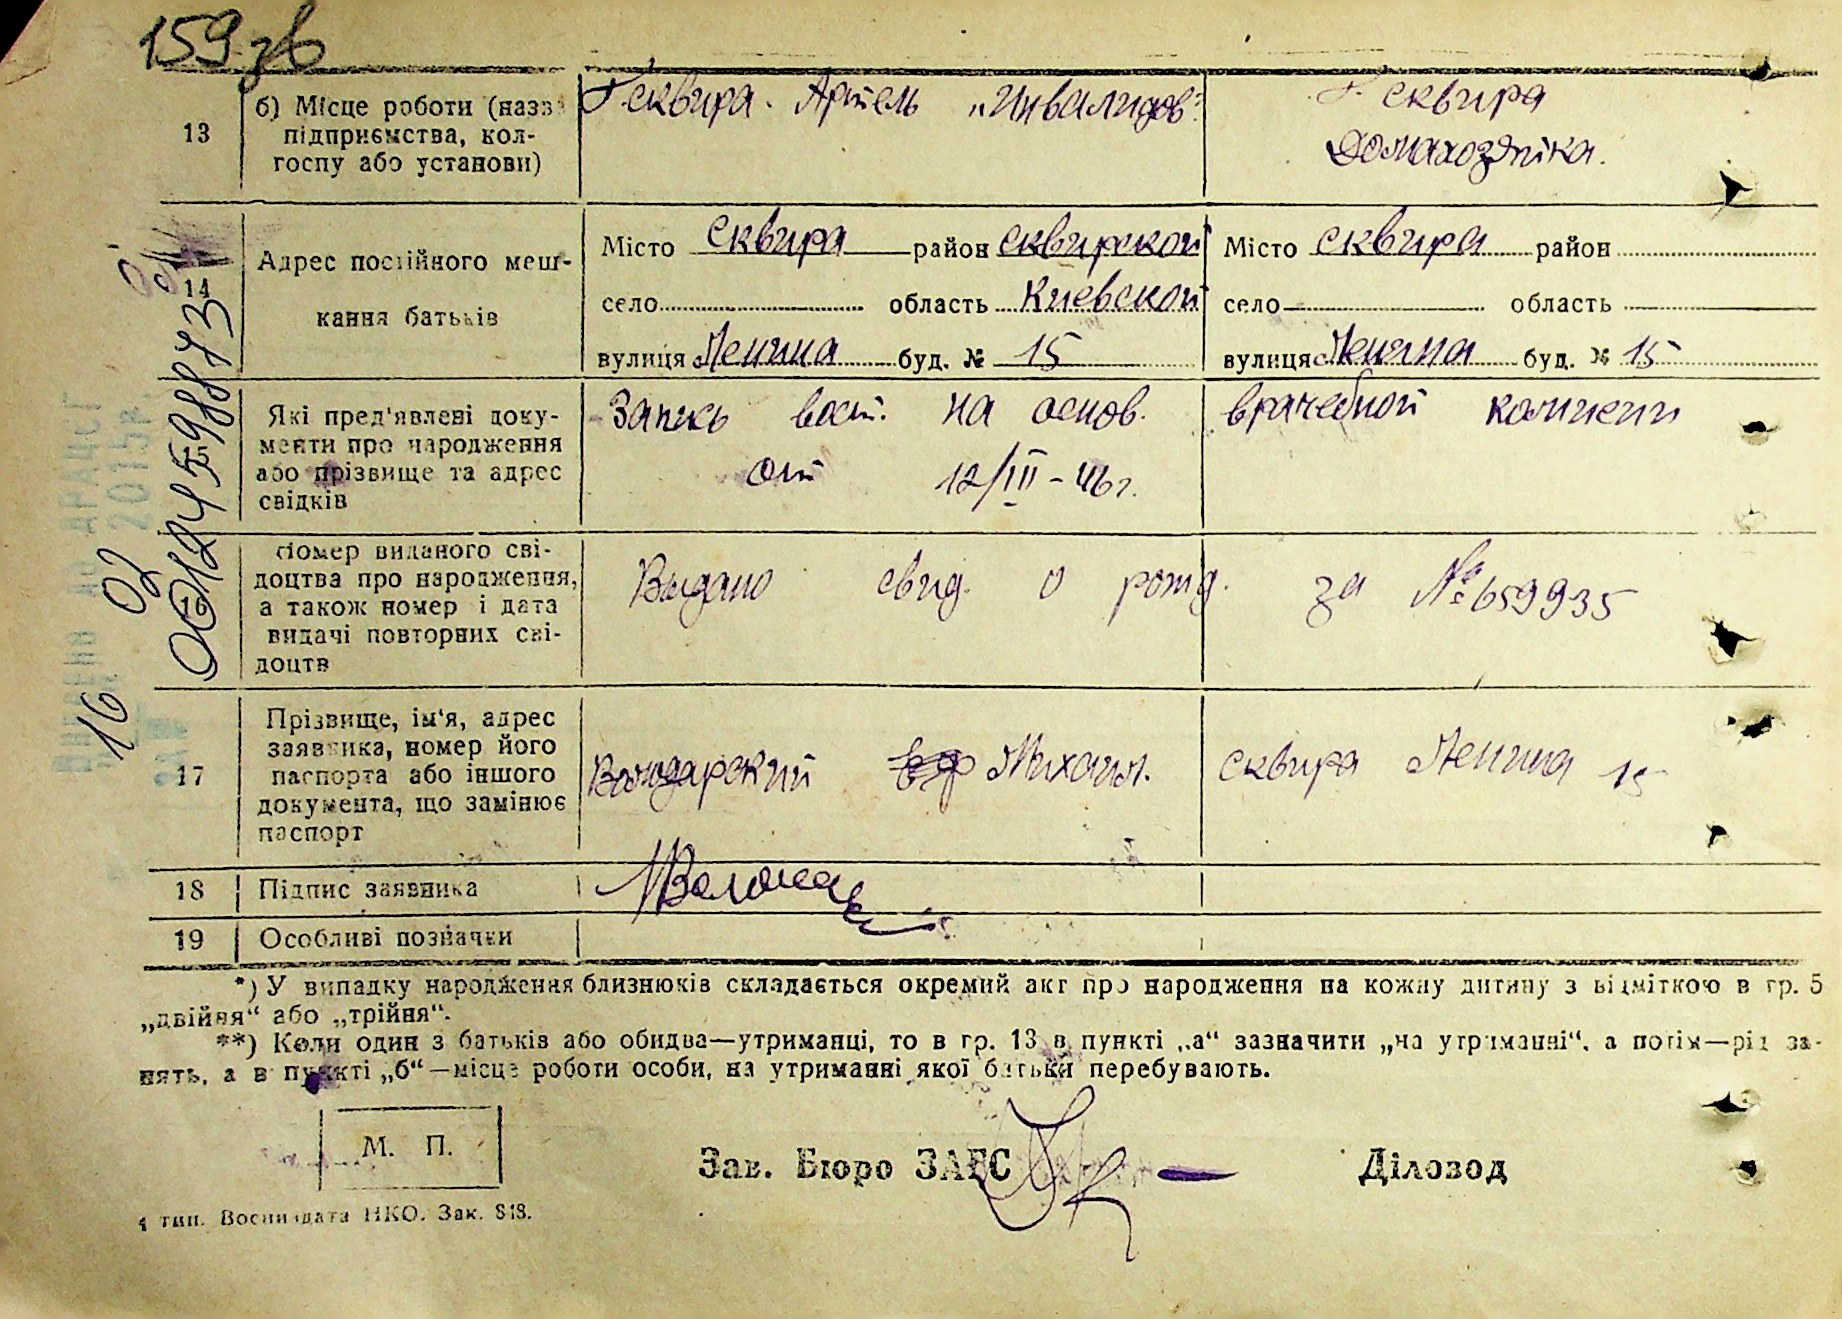 159 зв
13 б) Місце роботи (назва г. Сквира. Артель „Инвалидов" г. Сквира
підприємства, кол-
госпу або установи) Домахозяйка.
14 Адрес постійного меш-
кання батьків
Місто Сквира район Сквирской Місто Сквира район
село область Киевской село область
вулиця Ленина буд. № 15 вулиця Ленина буд. № 15
Які пред'явлені доку- Запись вост. на основ. врачебной комисии
менти про народження
або прізвище та адрес от 12/III-46 г.
свідків
Номер виданого сві-
доцтва про народження, Выдано свид. о рожд. за № 659935
а також номер і дата
видачі повторних сві-
доцтв
17 Прізвище, ім'я, адрес
заявника, номер його
паспорта або іншого Михаил. Сквира Ленина 15
документа, що замінює
паспорт
18 Підпис заявника
19 Особливі позначки
*) У випадку народження близнюків складається окремий акт про народження на кожну дитину з відміткою в гр. 5
„двійня" або „трійня".
**) Коли один з батьків або обидва—утриманці, то в гр. 13 в пункті „а" зазначити „на утриманні", а потім—рід за-
нять, а в пункті „б"—місце роботи особи, на утриманні якої батьки перебувають.
М. П.
Зав. Бюро ЗАГС Діловод
тип. Воениздата НКО. Зак. 818.
16 02